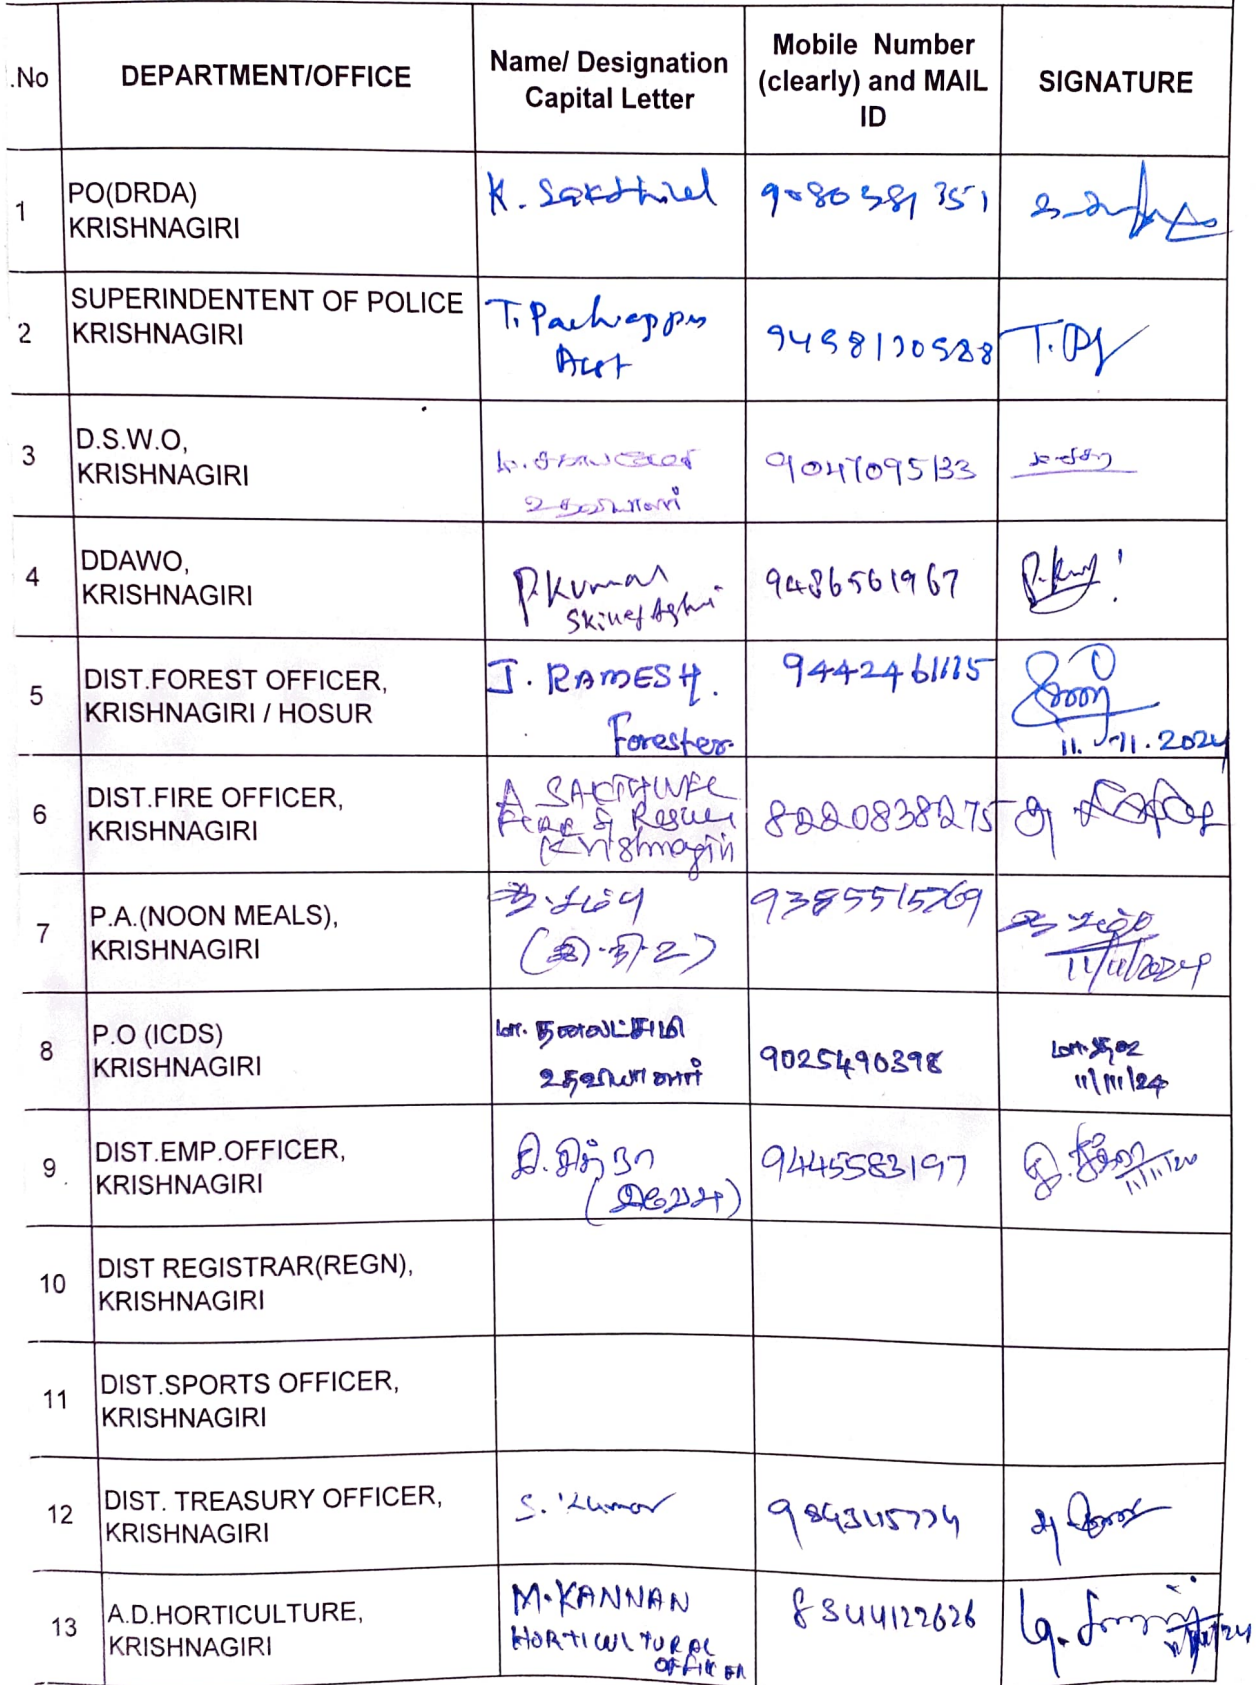 .No
DEPARTMENT/OFFICE
Name/ Designation
Capital Letter
Mobile Number
(clearly) and MAIL
ID
SIGNATURE
1
PO(DRDA)
KRISHNAGIRI
K. Sakthivel
9080381351
2
SUPERINDENTENT OF POLICE
KRISHNAGIRI
T. Pachappan
9498170588
T.
3
D.S.W.O,
KRISHNAGIRI
உதவியாளர்
9047095133
4
DDAWO,
KRISHNAGIRI
P. Kumar
9486561967
5
DIST.FOREST OFFICER,
KRISHNAGIRI / HOSUR
J. RAMESH.
Forester.
9442461115
11.11.2024
6
DIST.FIRE OFFICER,
KRISHNAGIRI
A SAKTHIVEL
Fire & Rescue
Krishnagiri
8220838275
7
P.A.(NOON MEALS),
KRISHNAGIRI
9385515269
11/11/2024
8
P.O (ICDS)
KRISHNAGIRI
மா. தனலட்சுமி
உதவியாளர்
9025490398
11/11/24
9
DIST.EMP.OFFICER,
KRISHNAGIRI
இ. சித்ரா
9445583197
10
DIST REGISTRAR(REGN),
KRISHNAGIRI
11
DIST.SPORTS OFFICER,
KRISHNAGIRI
12
DIST. TREASURY OFFICER,
KRISHNAGIRI
S. Kumar
13
A.D.HORTICULTURE,
KRISHNAGIRI
M. KANNAN
HORTICULTURAL
OFFICER
8344122626